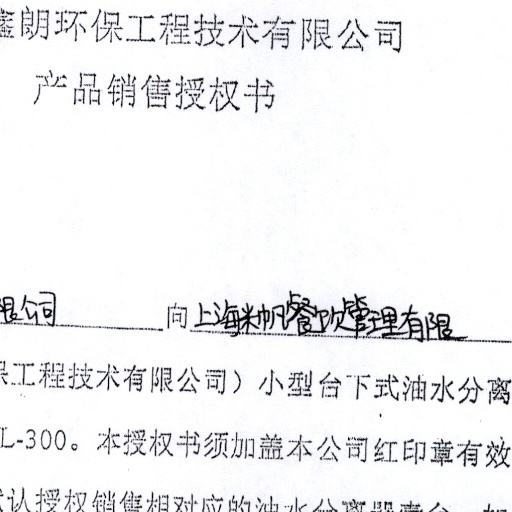 鑫朗环保工程技术有限公司
产品销售授权书
限公司 向上海米帆餐饮管理有限
保工程技术有限公司）小型台下式油水分离
L-300。本授权书须加盖本公司红印章有效
认授权销售相对应的油水分离器壹台，如